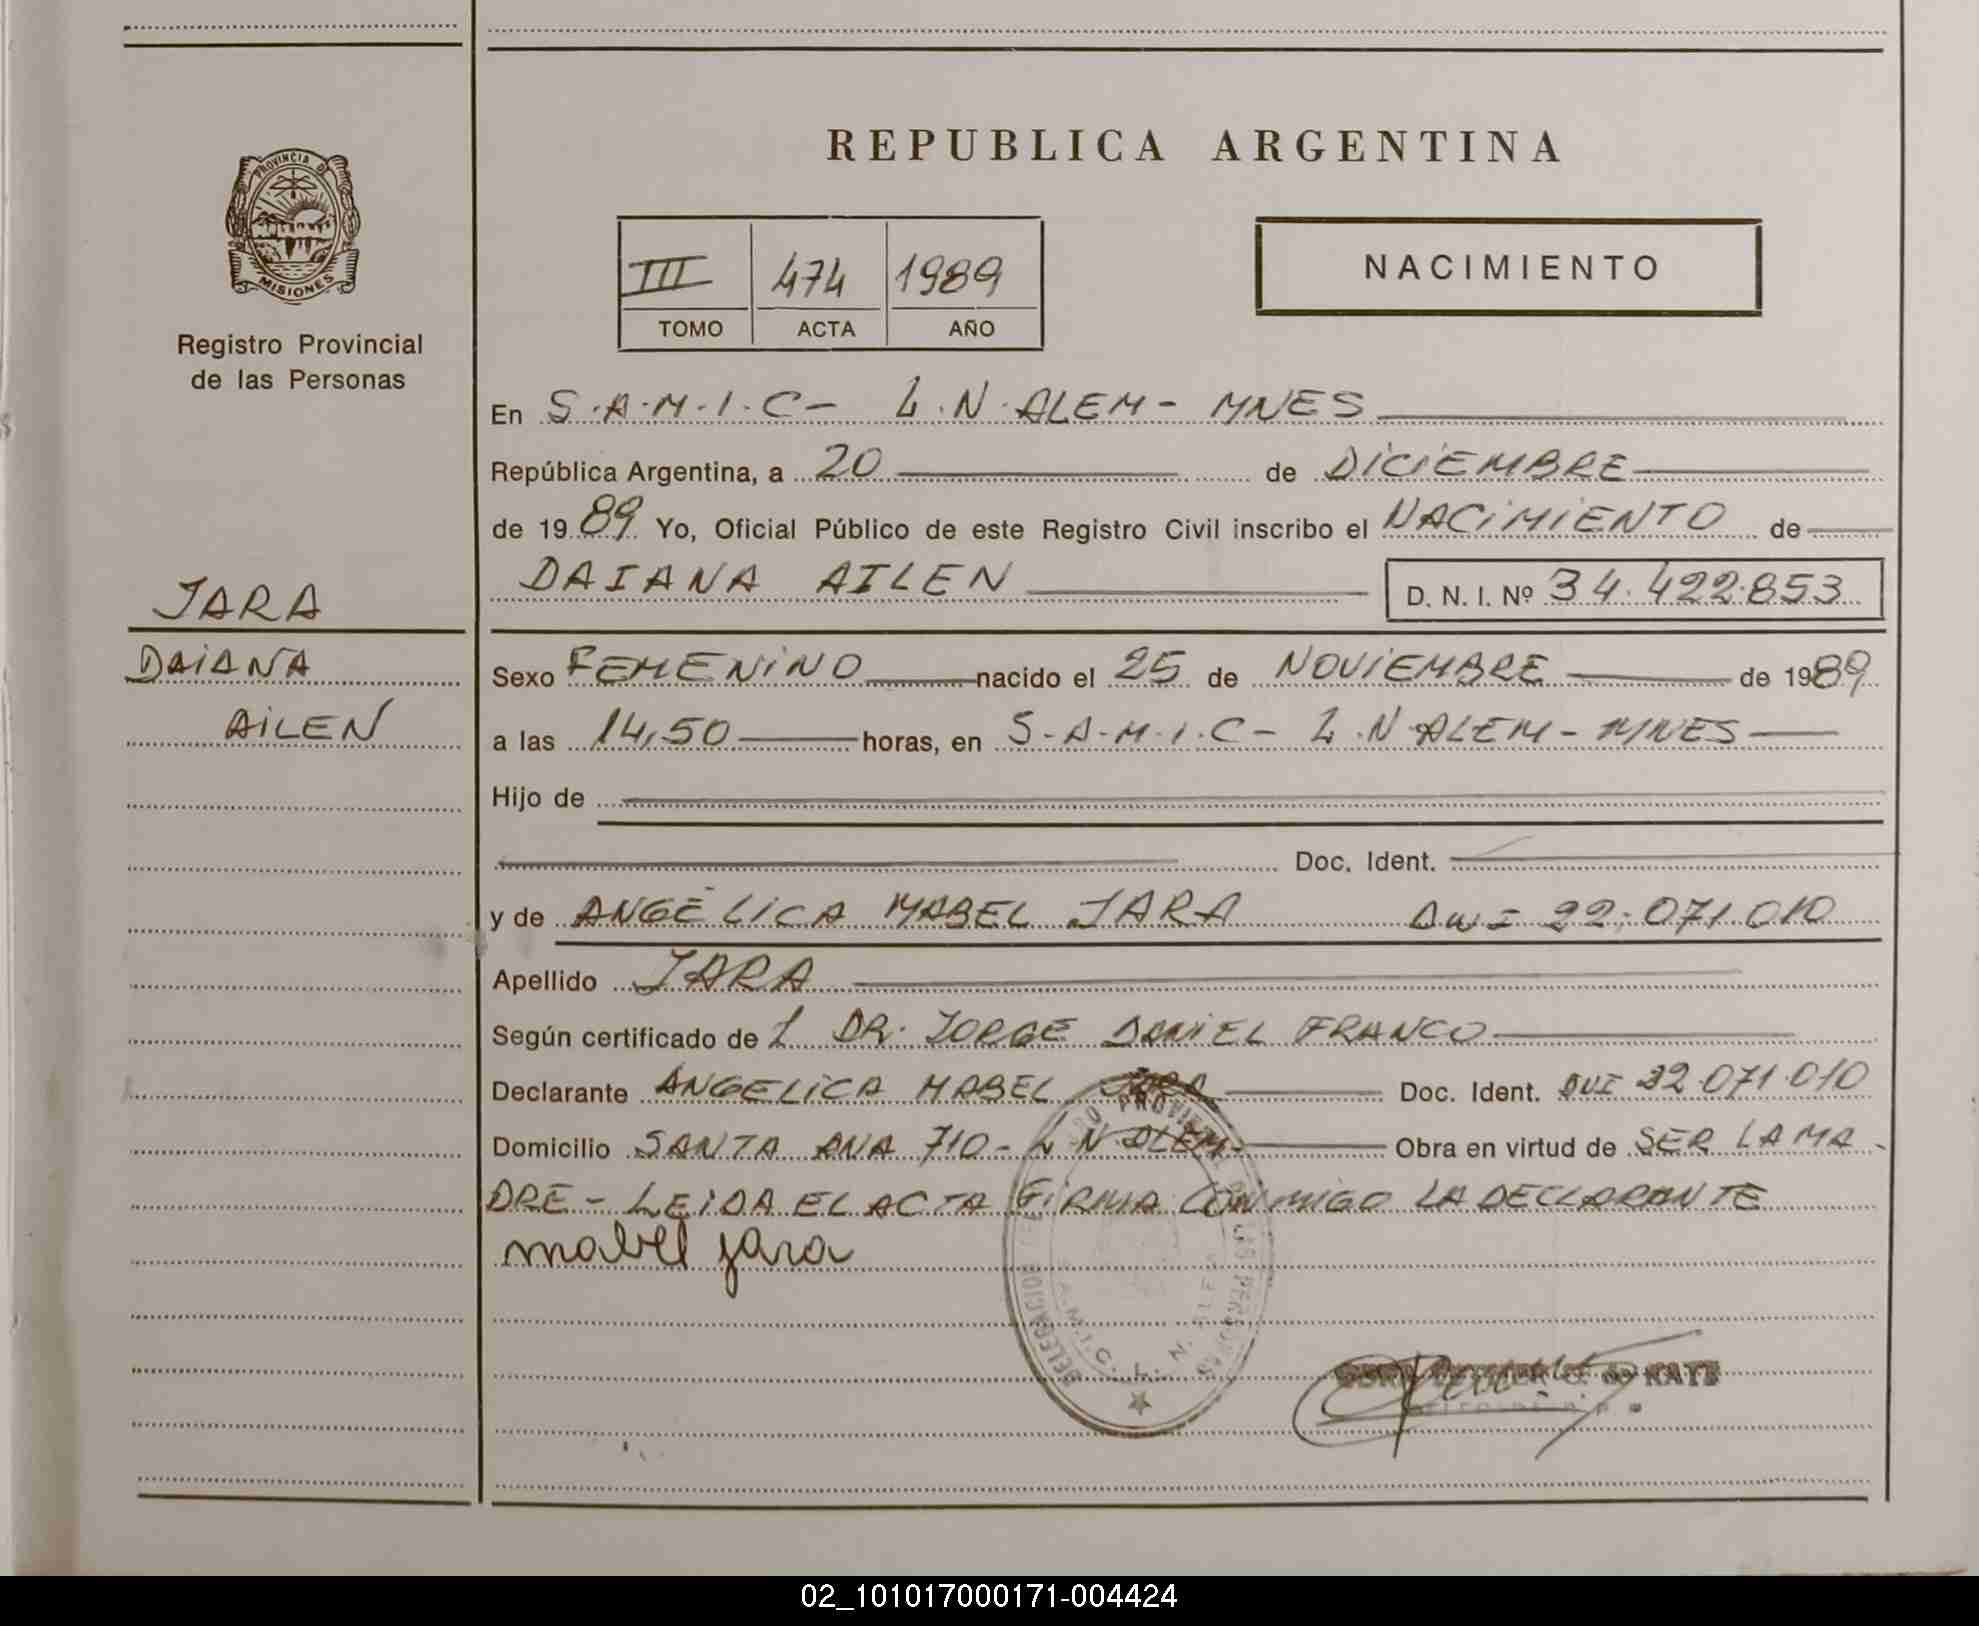 REPUBLICA ARGENTINA
PROVINCIA DE
MISIONES
Registro Provincial
de las Personas
III 474 1989
TOMO ACTA AÑO
NACIMIENTO
En S.A.M.I.C- L.N.ALEM- MNES
República Argentina, a 20 de DICIEMBRE
de 1989 Yo, Oficial Público de este Registro Civil inscribo el NACIMIENTO de
DAIANA AILEN D. N. I. Nº 34.422.853
JARA
DAIANA
AILEN
Sexo FEMENINO nacido el 25 de NOVIEMBRE de 1989
a las 14,50 horas, en S-A-M.I.C- L.N ALEM- MNES
Hijo de
Doc. Ident.
y de ANGELICA MABEL JARA DNI 22.071.010
Apellido JARA
Según certificado de DR. JORGE DANIEL FRANCO
Declarante ANGELICA MABEL JARA Doc. Ident. DNI 22.071.010
Domicilio SANTA ANA 710- L N ALEM- Obra en virtud de SER LA MA-
DRE - LEIDA EL ACTA FIRMA CONMIGO LA DECLARANTE
mabel jara
S.A.M.I.C. L. N. ALEM
02_101017000171-004424